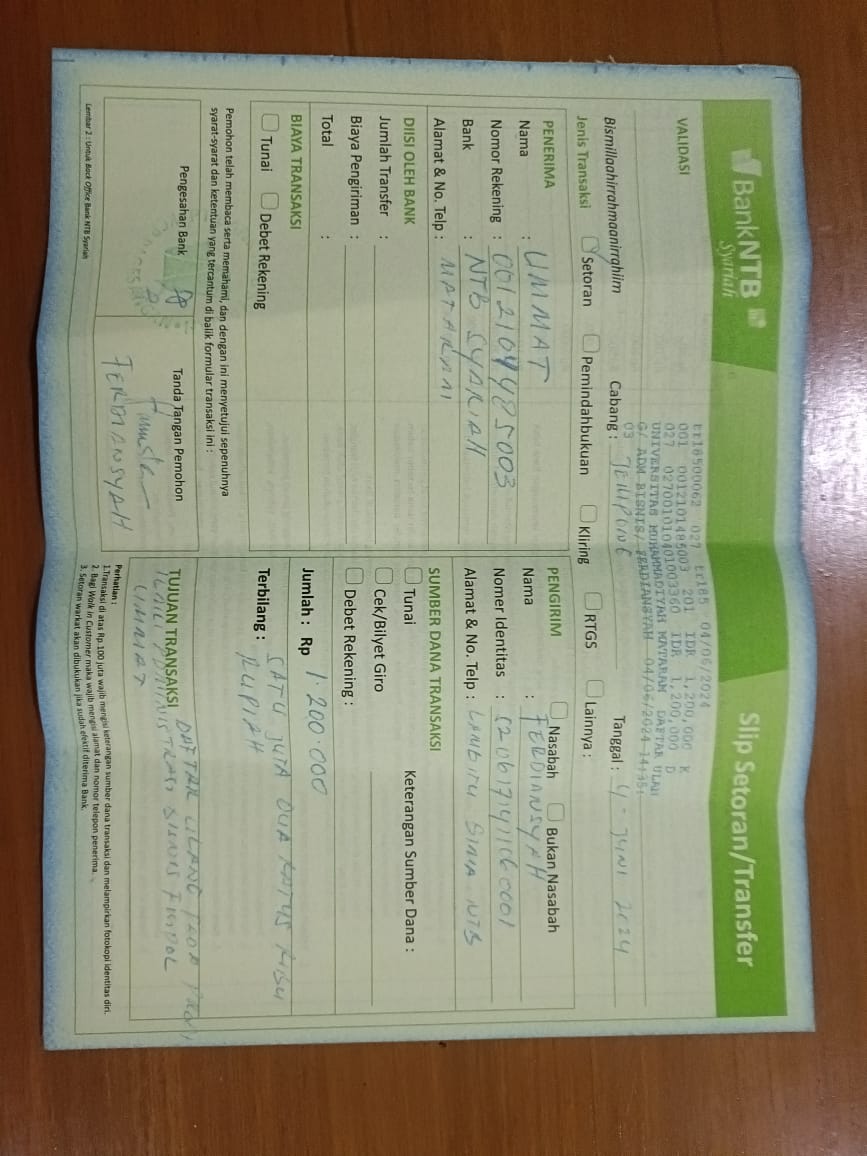 BankNTB
Syariah
Slip Setoran/Transfer
VALIDASI
tr18500062 027 tr185 04/06/2024
001 0012101485003 201 IDR 1,200,000 K
027 0270010104001003360 IDR 1,200,000 D
UNIVERSITAS MUHAMMADIYAH MATARAM DAFTAR ULAN
G/ ADM BISNIS/ FERDIANSYAH 04/06/2024-14:35:
03
Bismillaahirrahmaanirrahiim
Cabang :
Tanggal : 4 - JUNI 2024
Jenis Transaksi
Setoran
Pemindahbukuan
Kliring
RTGS
Lainnya :
PENERIMA
Nama : UMMAT
Nomor Rekening :
Bank : NTB SYARIAH
Alamat & No. Telp : MATARAM
PENGIRIM
Nasabah
Bukan Nasabah
Nama : FERDIANSYAH
Nomer Identitas : 5206171411060001
Alamat & No. Telp : LAMBITU BIMA NTB
DIISI OLEH BANK
Jumlah Transfer :
Biaya Pengiriman :
Total :
SUMBER DANA TRANSAKSI
Tunai
Keterangan Sumber Dana :
Cek/Bilyet Giro
Debet Rekening :
BIAYA TRANSAKSI
Tunai
Debet Rekening
Jumlah : Rp 1.200.000
Terbilang : SATU JUTA DUA RATUS RIBU
RUPIAH
Pemohon telah membaca serta memahami, dan dengan ini menyetujui sepenuhnya
syarat-syarat dan ketentuan yang tercantum di balik formular transaksi ini :
Pengesahan Bank
Tanda Tangan Pemohon
FERDIANSYAH
TUJUAN TRANSAKSI DAFTAR ULANG
ADMINISTRASI BISNIS FISIPOL
UMMAT
Perhatian :
1.Transaksi di atas Rp.100 juta wajib mengisi keterangan sumber dana transaksi dan melampirkan fotokopi identitas diri.
2. Bagi Walk in Customer maka wajib mengisi alamat dan nomor telepon penerima.
3. Setoran warkat akan dibukukan jika sudah efektif diterima Bank.
Lembar 2 : Untuk Back Office Bank NTB Syariah